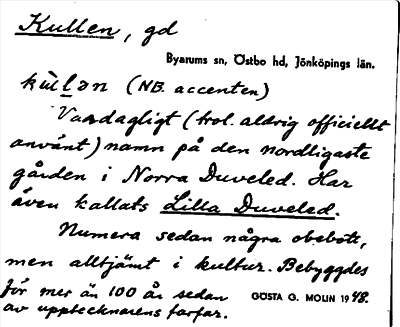 Kullen, gd
Byarums sn, Östbo hd, Jönköpings län.
kùlən (NB. accenten)
Vardagligt (trol. aldrig officiellt
använt) namn på den nordligaste
gården i Norra Duveled. Har
även kallats Lilla Duveled.
Numera sedan några obebott,
men alltjämt i kultur. Bebyggdes
för mer än 100 år sedan
GÖSTA G. MOLIN 1948.
av upptecknarens farfar.